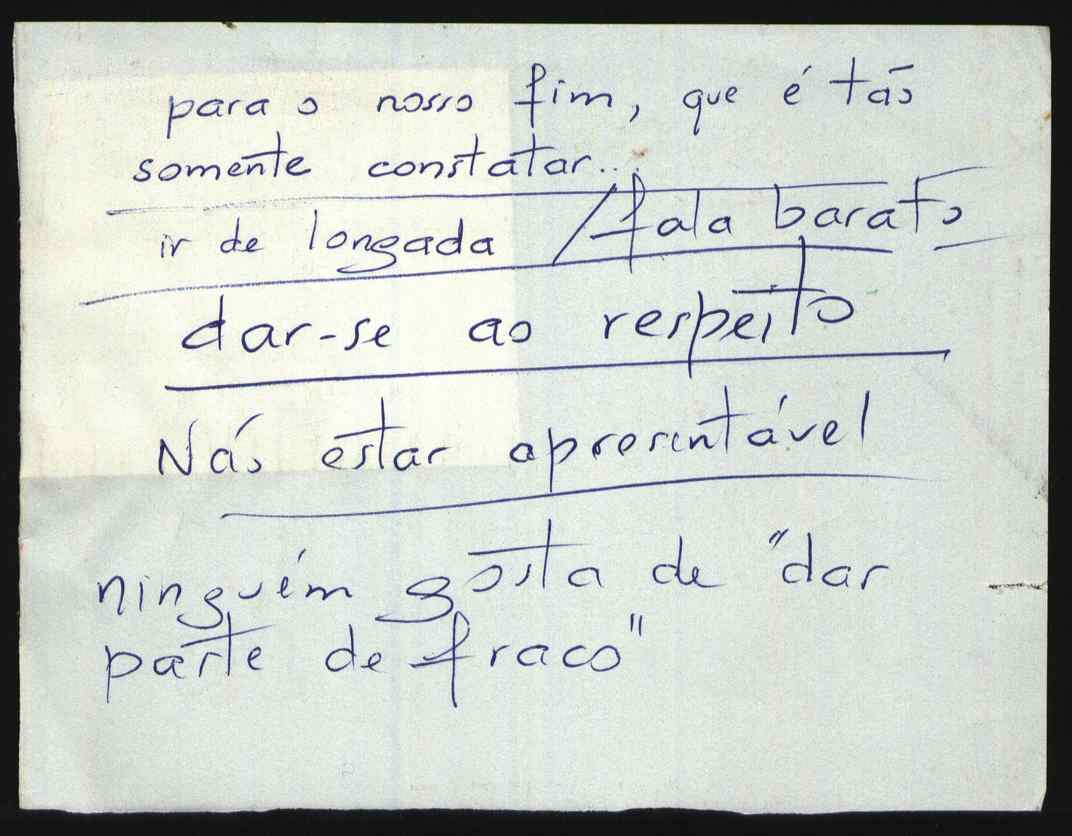 para o nosso fim, que é tão
somente constatar...
ir de longada / fala barato
dar-se ao respeito
Não estar apresentável
ninguém gosta de "dar
parte de fraco"